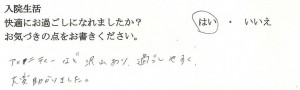 入院生活
快適にお過ごしになれましたか? はい ・ いいえ
お気づきの点をお書きください。
アメニティーなど沢山あり、過ごしやすく、
大変助かりました。